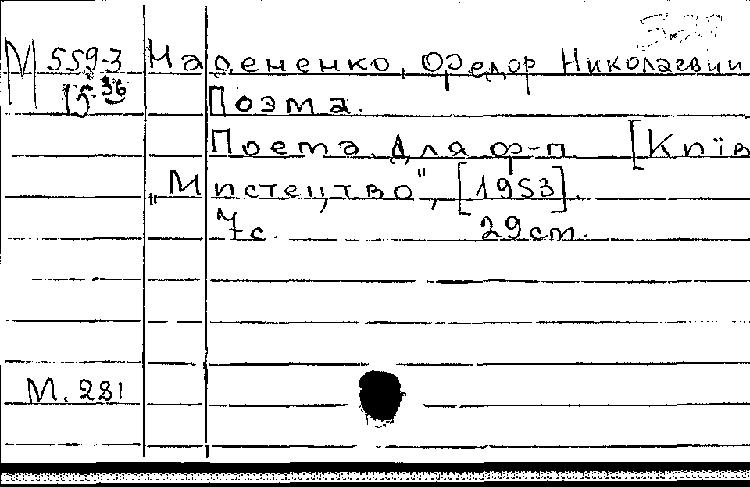 М 559-3 На ененко, Федор Николаевич
15 36 Поэма.
Поема для ф-п [Київ
„Мистецтво", [1953].
7с. 29 cm.
М. 281